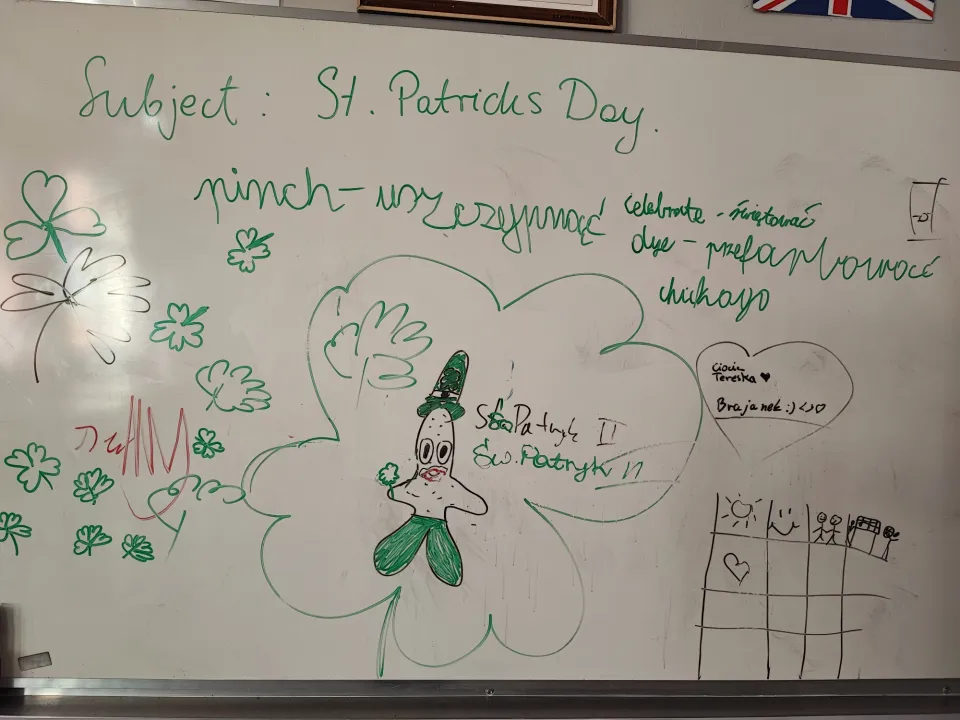 Subject: St. Patricks Day.
pinch - uszczypnąć
celebrate - świętować
dye - przefarbować
chikago
Ciocia
Tereska ♥
Brajanek :) <3♡
Patryk II
Św. Patryk II